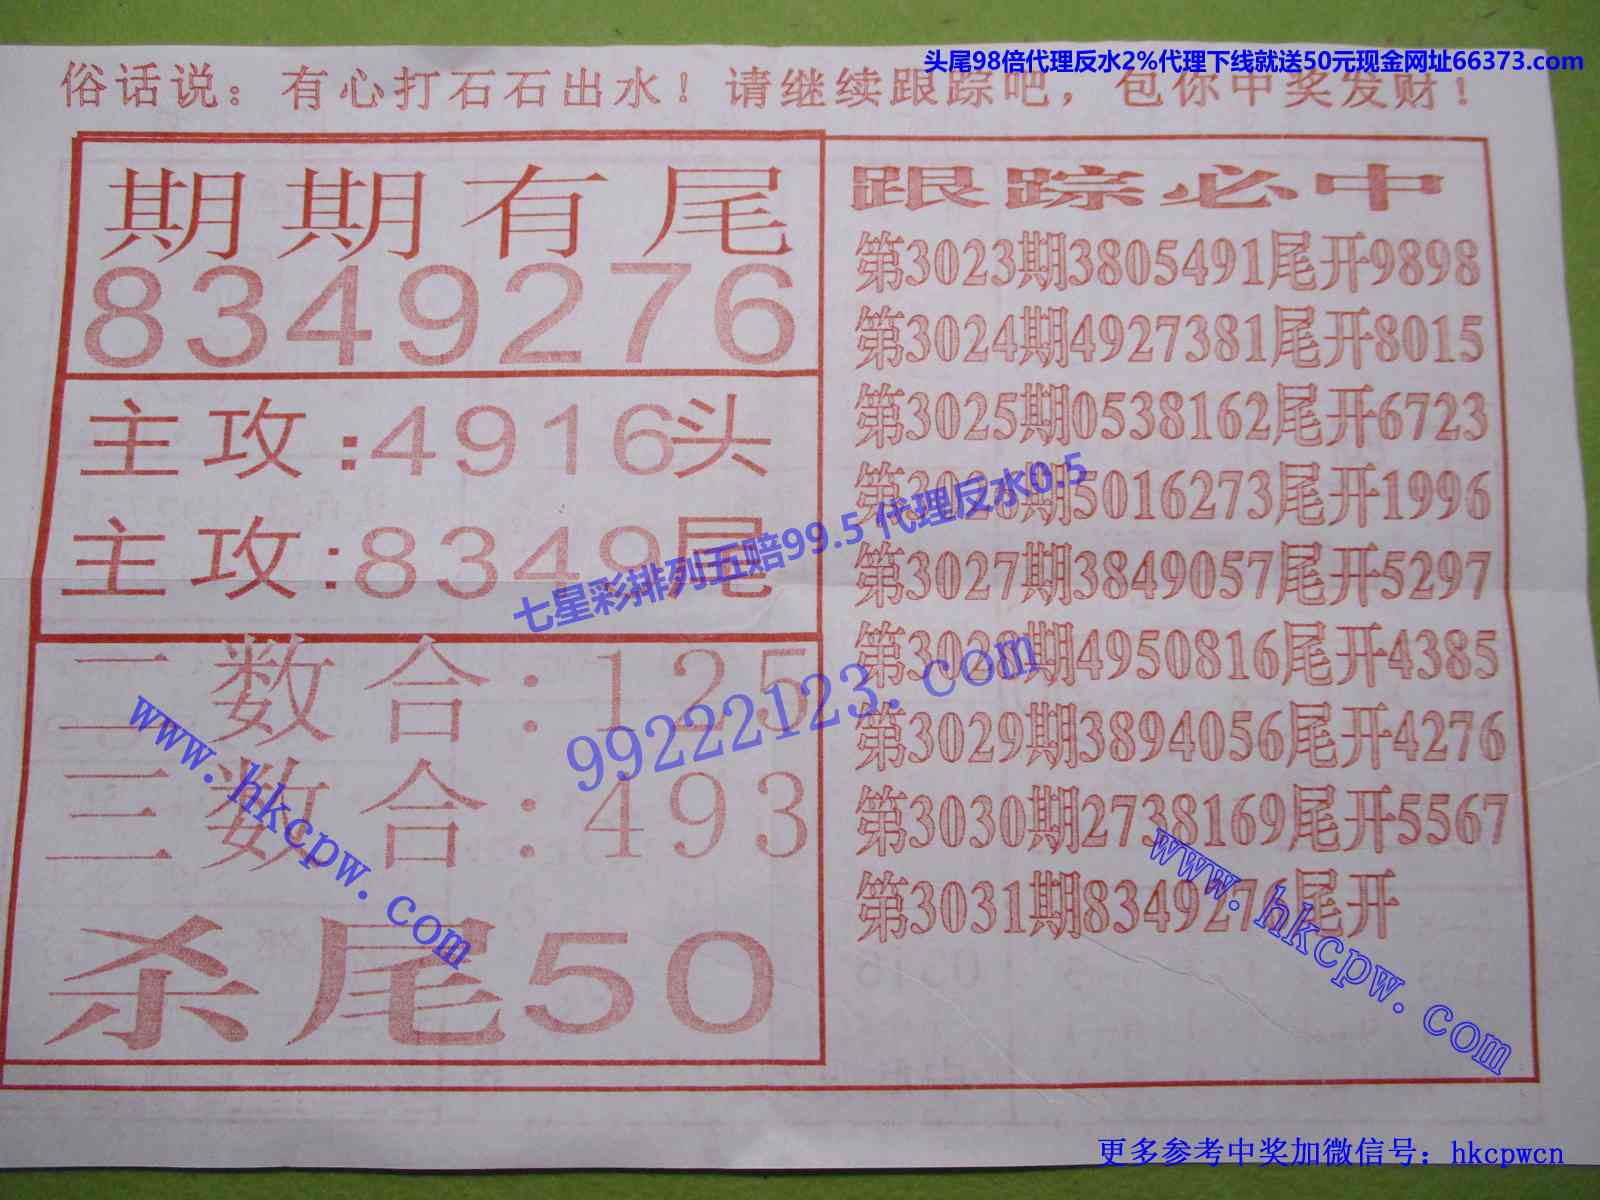 头尾98倍代理反水2%代理下线就送50元现金网址66373.com
俗话说：有心打石石出水！请继续跟踪吧，包你中奖发财！
期期有尾
8349276
主攻:4916头
主攻:8349尾
二数合:125
三数合:493
杀尾50
跟踪必中
第3023期3805491尾开9898
第3024期4927381尾开8015
第3025期0538162尾开6723
第3026期5016273尾开1996
第3027期3849057尾开5297
第3028期4950816尾开4385
第3029期3894056尾开4276
第3030期2738169尾开5567
第3031期8349276尾开
七星彩排列五赔99.5 代理反水0.5
99222123.com
www.hkcpw.com
www.hkcpw.com
更多参考中奖加微信号：hkcpwcn